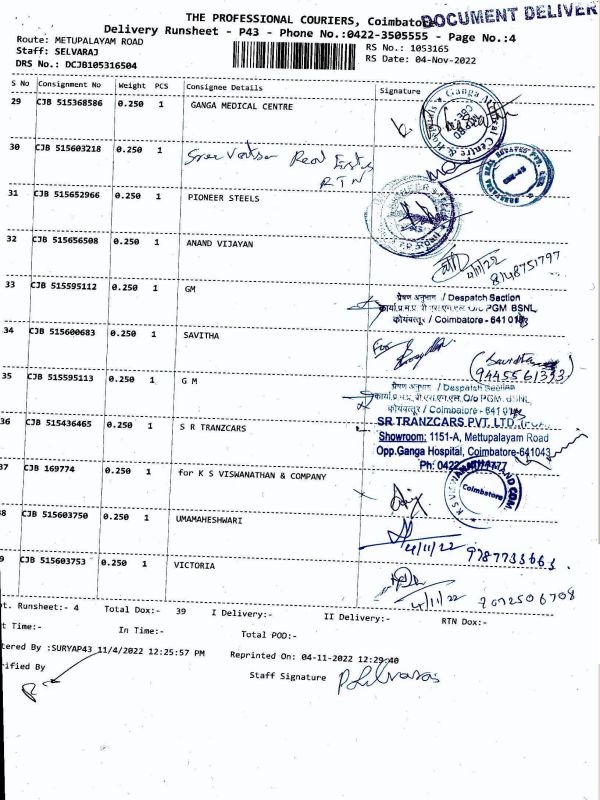 THE PROFESSIONAL COURIERS, Coimbatore
DOCUMENT DELIVER
Delivery Runsheet - P43 - Phone No.:0422-3505555 - Page No.:4
Route: METUPALAYAM ROAD
RS No.: 1053165
Staff: SELVARAJ
RS Date: 04-Nov-2022
DRS No.: DCJB105316504
S No Consignment No Weight PCS Consignee Details Signature
29 CJB 515368586 0.250 1 GANGA MEDICAL CENTRE
30 CJB 515603218 0.250 1 Sree Vatsa Real Estates
RTN
31 CJB 515652966 0.250 1 PIONEER STEELS
32 CJB 515656508 0.250 1 ANAND VIJAYAN
4/11/22
8148751797
33 CJB 515595112 0.250 1 GM
प्रेषण अनुभाग / Despatch Section
O/o PGM BSNL,
कोयंबत्तूर / Coimbatore - 641 043
34 CJB 515600683 0.250 1 SAVITHA
For
(Savitha
9445561333)
35 CJB 515595113 0.250 1 G M
प्रेषण अनुभाग / Despatch Section
O/o PGM, BSNL,
कोयंबत्तूर / Coimbatore - 641 043
36 CJB 515436465 0.250 1 S R TRANZCARS
SR TRANZCARS PVT. LTD.,
Showroom: 1151-A, Mettupalayam Road
Opp.Ganga Hospital, Coimbatore-641043
37 CJB 169774 0.250 1 for K S VISWANATHAN & COMPANY
Coimbatore
38 CJB 515603750 0.250 1 UMAMAHESHWARI
4/11/22 9787733663
39 CJB 515603753 0.250 1 VICTORIA
4/11/22 9092506708
pt. Runsheet:- 4 Total Dox:- 39 I Delivery:- II Delivery:- RTN Dox:-
t Time:- In Time:- Total POD:-
tered By :SURYAP43 11/4/2022 12:25:57 PM Reprinted On: 04-11-2022 12:29:40
rified By
Staff Signature